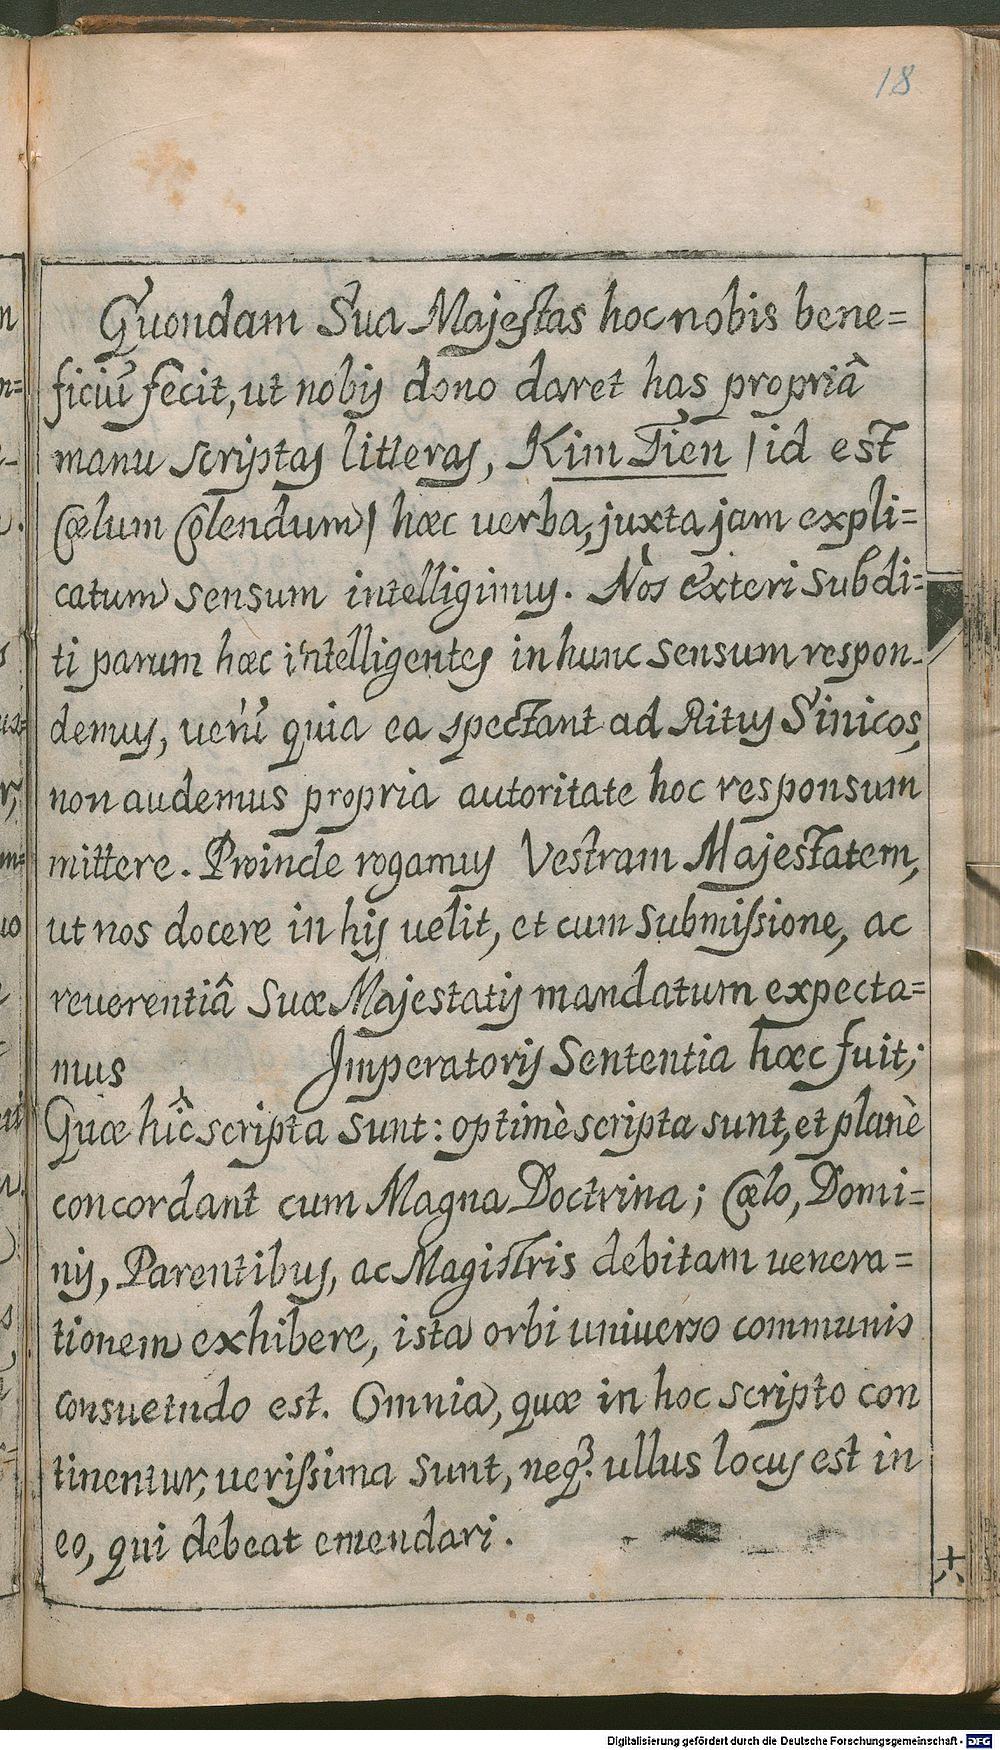 18
Quondam Sua Majestas hoc nobis bene=
ficiū fecit, ut nobis dono daret has propriâ
manu scriptas litteras, Kim Tien / id est
Cœlum Colendum / hæc verba, juxta jam expli=
catum sensum intelligimus. Nos exteri subdi=
ti parum hæc intelligentes in hunc sensum respon-
demus, uerū quia ea spectant ad Ritus Sinicos,
non audemus propria autoritate hoc responsum
mittere. Proinde rogamus Vestram Majestatem,
ut nos docere in his uelit, et cum submiſsione, ac
reuerentiâ Suæ Majestatis mandatum expecta=
mus Imperatoris Sententia hæc fuit;
Quæ hîc scripta sunt: optimè scripta sunt, et planè
concordant cum Magna Doctrina; Cœlo, Domi=
nis, Parentibus, ac Magistris debitam uenera=
tionem exhibere, ista orbi uniuerso communis
consuetudo est. Omnia, quæ in hoc scripto con
tinentur, ueriſsima sunt, neqꝫ ullus locus est in
eo, qui debeat emendari.
十八
Digitalisierung gefördert durch die Deutsche Forschungsgemeinschaft - DFG